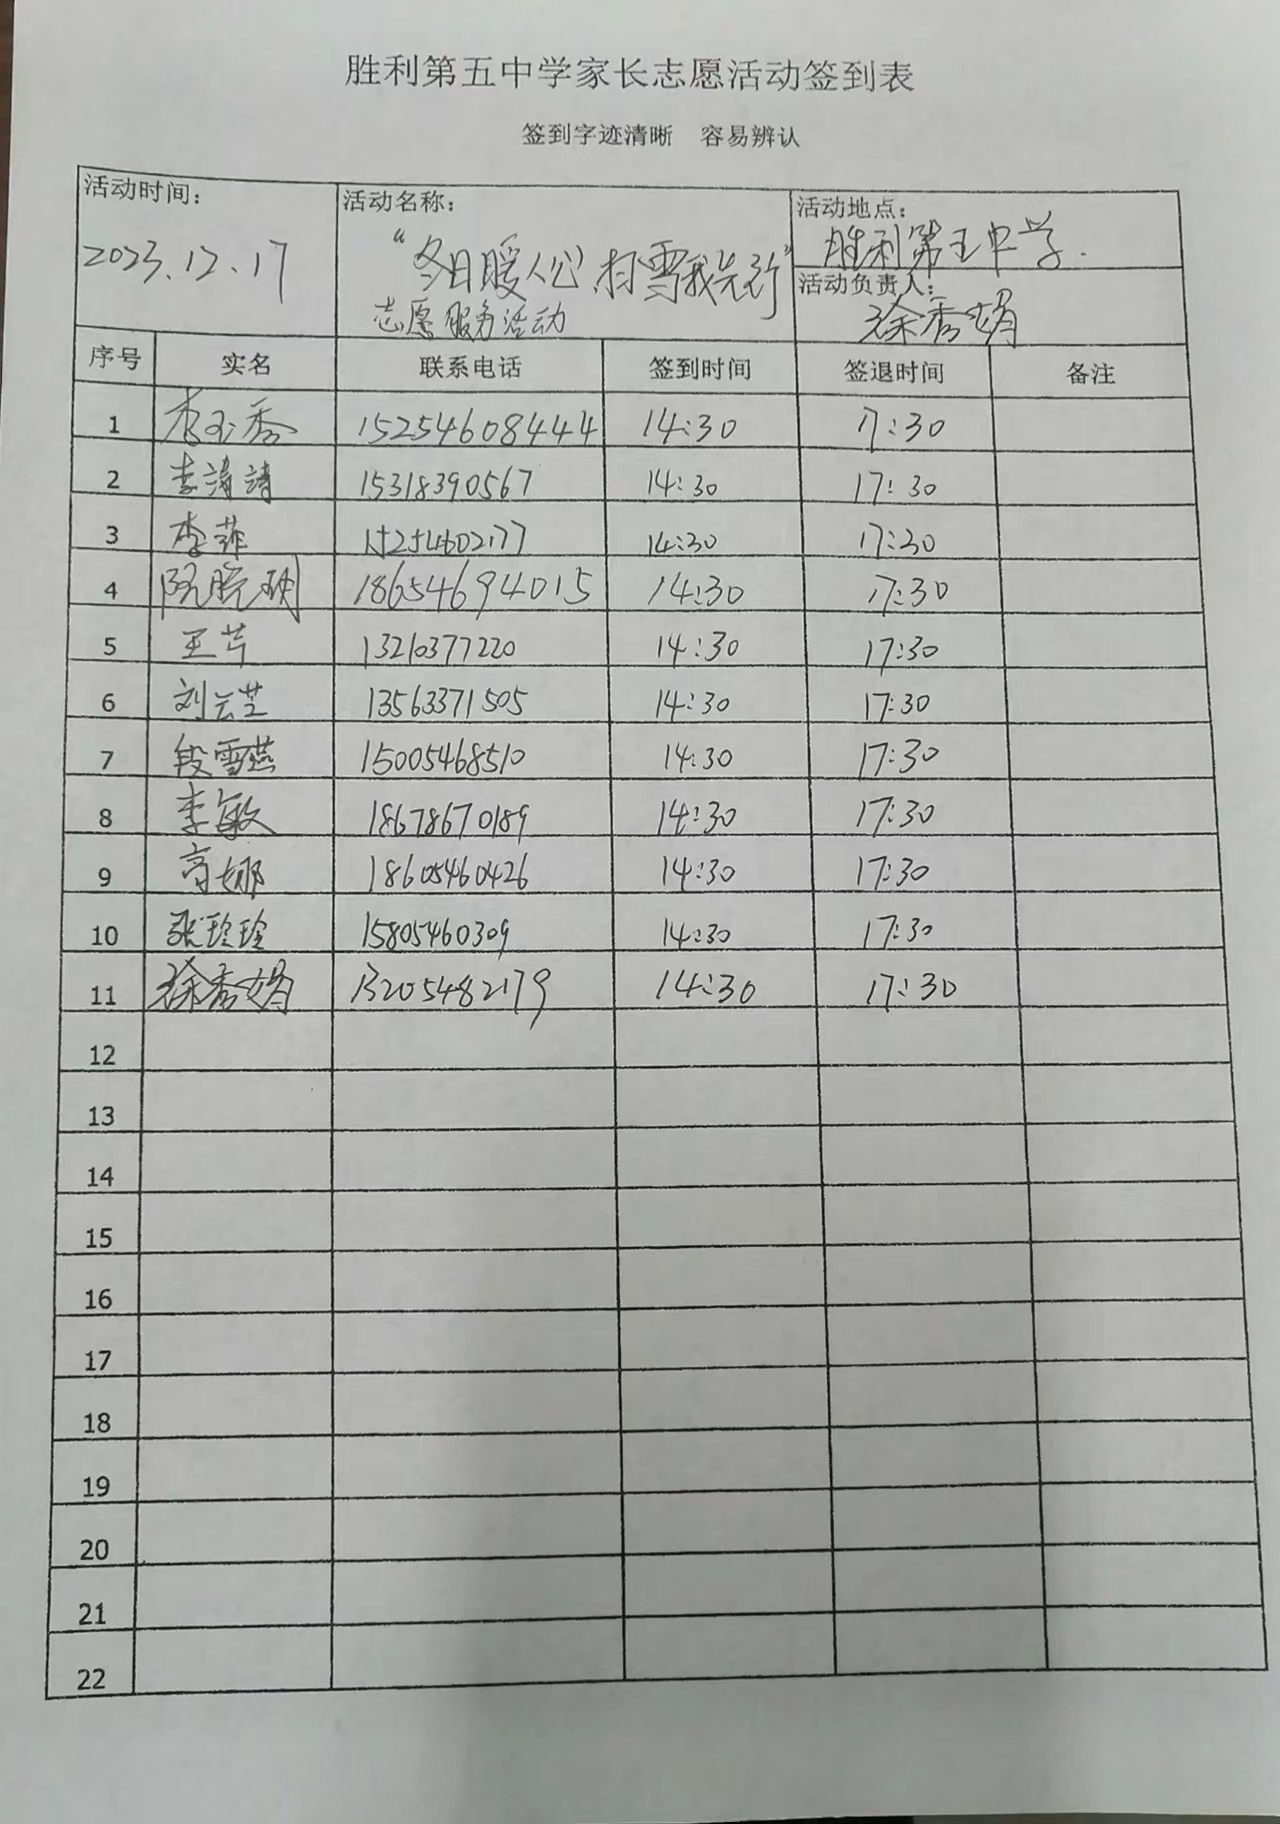 胜利第五中学家长志愿活动签到表
签到字迹清晰 容易辨认
活动时间: 2023.12.17
活动名称: “冬日暖人心,扫雪我先行”
志愿服务活动
活动地点: 胜利第五中学.
活动负责人: 徐秀娟
序号 实名 联系电话 签到时间 签退时间 备注
1 李玉香 15254608444 14:30 17:30
2 李涛涛 15318390567 14:30 17:30
3 李菲 15254602177 14:30 17:30
4 阮晓明 18654694015 14:30 17:30
5 王芹 13210377220 14:30 17:30
6 刘云芝 13563371505 14:30 17:30
7 段雪燕 15005468510 14:30 17:30
8 李敏 18678670189 14:30 17:30
9 高娜 18605460426 14:30 17:30
10 张玲玲 15805460309 14:30 17:30
11 徐秀娟 13205482179 14:30 17:30
12
13
14
15
16
17
18
19
20
21
22